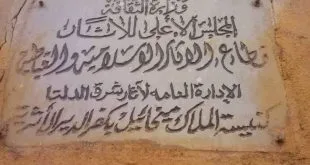 وزارة الثقافة
المجلس الأعلى للآثار
قطاع الآثار الإسلامية والقبطية
الإدارة العامة لآثار شرق الدلتا
كنيسة الملاك ميخائيل بكفر الدير الأثرية